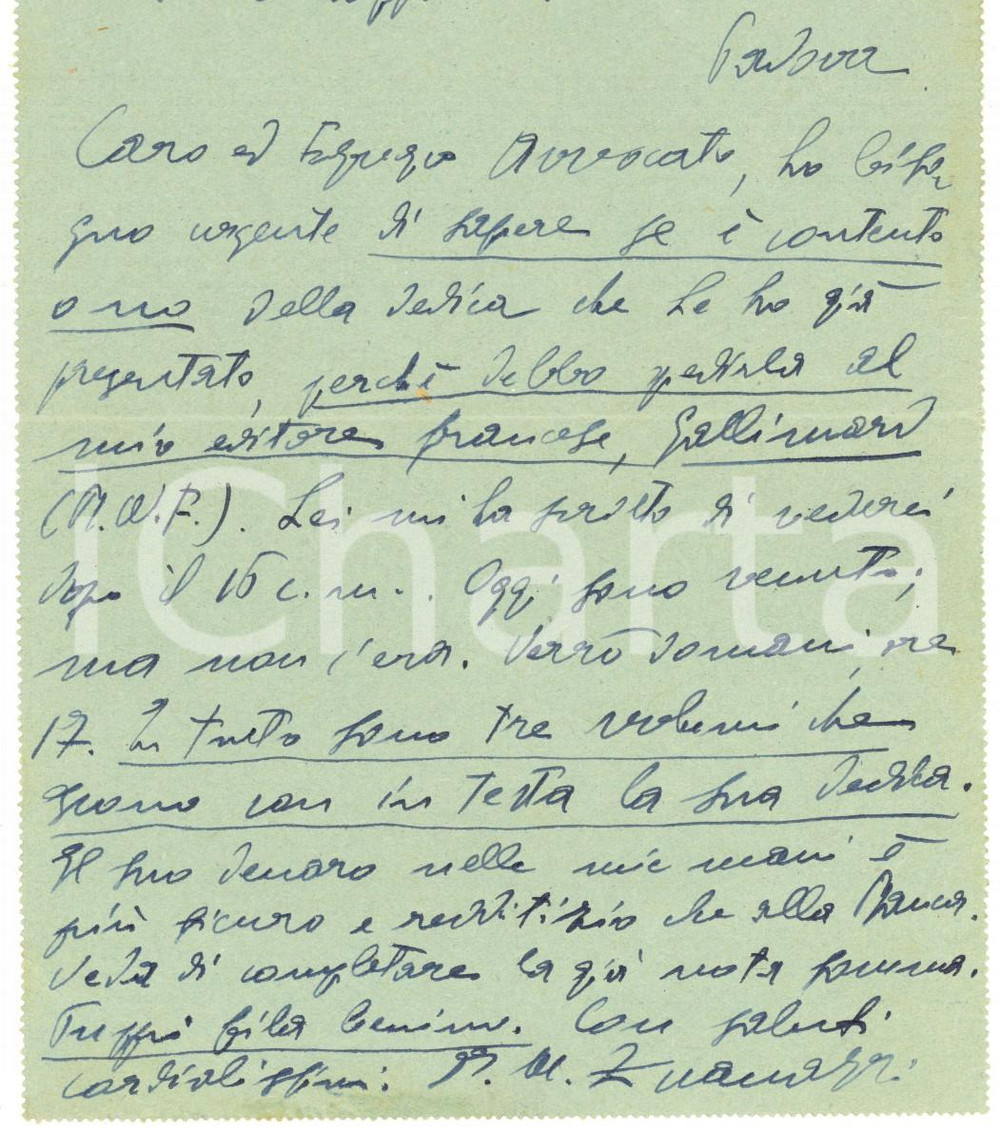 Padova
Caro ed Egregio Avvocato, ho biso-
gno urgente di sapere se è contento
o no della dedica che Le ho già
presentato, perchè debbo spedirla al
mio editore francese, Gallimard
(N.R.F.). Lei mi ha scritto di vederci
dopo il 15 c.m.. Oggi sono venuto;
ma non c'era. Verrò domani, ore
17. In tutto sono tre volumi che
escono con in testa la sua dedica.
Il suo denaro nelle mie mani è
più sicuro e redditizio che alla Banca.
Veda di completare la già nota somma.
Con saluti
cordialissimi.
ICharta